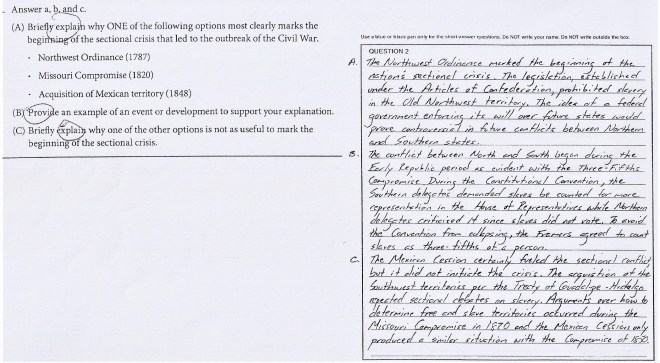 Answer a, b, and c.
(A) Briefly explain why ONE of the following options most clearly marks the
beginning of the sectional crisis that led to the outbreak of the Civil War.
· Northwest Ordinance (1787)
· Missouri Compromise (1820)
· Acquisition of Mexican territory (1848)
(B) Provide an example of an event or development to support your explanation.
(C) Briefly explain why one of the other options is not as useful to mark the
beginning of the sectional crisis.
Use a blue or black pen only for the short-answer questions. Do NOT write your name. Do NOT write outside the box.
QUESTION 2
A. The Northwest Ordinance marked the beginning of the
nation's sectional crisis. The legislation, established
under the Articles of Confederation, prohibited slavery
in the Old Northwest territory. The idea of a federal
government enforcing its will over future states would
prove controversial in future conflicts between Northern
and Southern states.
B. The conflict between North and South began during the
Early Republic period as evident with the Three-Fifths
Compromise. During the Constitutional Convention, the
Southern delegates demanded slaves be counted for more
representation in the House of Representatives while Northern
delegates criticized it since slaves did not vote. To avoid
the Convention from collapsing, the Framers agreed to count
slaves as three-fifths of a person.
C. The Mexican Cession certainly fueled the sectional conflict
but it did not initiate the crisis. The acquisition of the
Southwest territories per the Treaty of Guadalupe-Hidalgo
sectional debates on slavery. Arguments over how to
determine free and slave territories occurred during the
Missouri Compromise in 1820 and the Mexican Cession only
produced a similar situation with the Compromise of 1850.